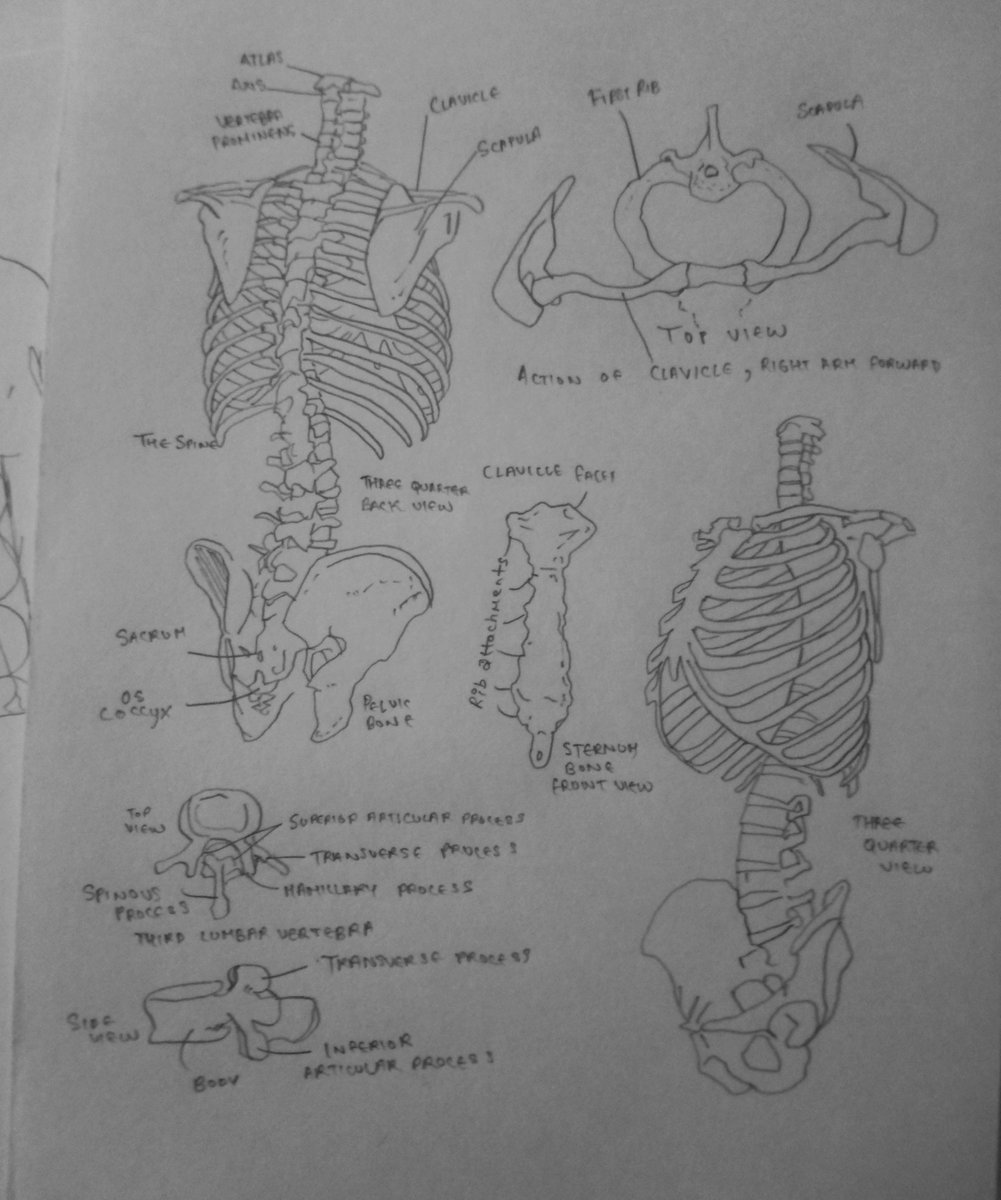 ATLAS
AXIS
VERTEBRA
PROMINENS
CLAVICLE
SCAPULA
THE SPINE
THREE QUARTER
BACK VIEW
SACRUM
OS
COCCYX
PELVIC
BONE
FIRST RIB
SCAPULA
TOP VIEW
ACTION OF CLAVICLE, RIGHT ARM FORWARD
CLAVICLE FACET
Rib attachments
STERNUM
BONE
FRONT VIEW
THREE
QUARTER
VIEW
TOP
VIEW
SUPERIOR ARTICULAR PROCESS
TRANSVERSE PROCESS
MAMILLARY PROCESS
SPINOUS
PROCESS
THIRD LUMBAR VERTEBRA
TRANSVERSE PROCESS
SIDE
VIEW
BODY
INFERIOR
ARTICULAR PROCESS